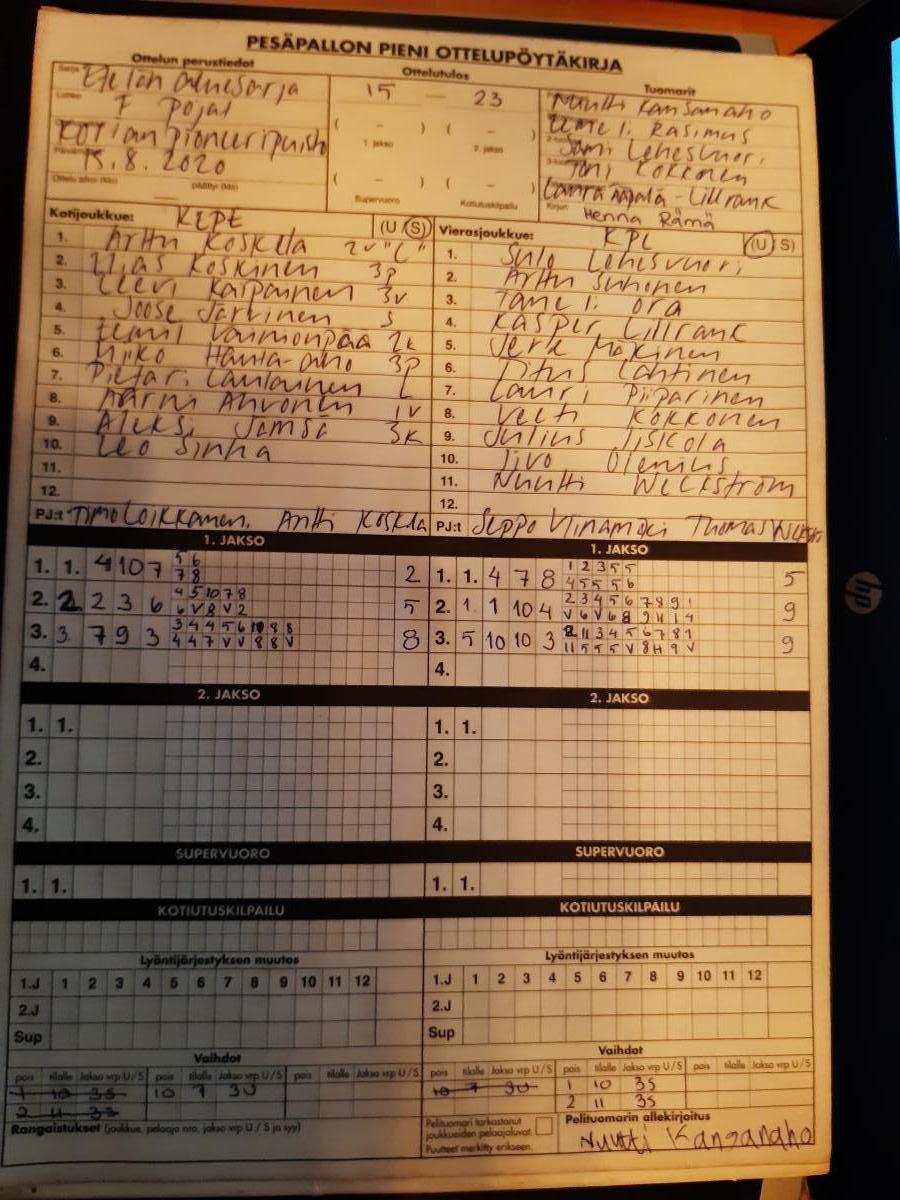 PESÄPALLON PIENI OTTELUPÖYTÄKIRJA
Ottelun perustiedot
Ottelutulos
Tuomarit
Sarja Etelän aluesarja
Lohko F Pojat
pioneeripuisto
15.8.2020
15 — 23
( - ) ( - )
1. jakso 2. jakso
( - ) ( - )
Supervuoro Kotiutuskilpailu
Nuutti Kansanaho
Rasimus
Sami Lehesvuori
Toni Kokkonen
Laura Aapala-Lillrank
Henna Rämä
Kotijoukkue: KLPE (U S)
1. Arttu Koskela 2v "L"
2. Elias Koskinen 3p
3. Leevi Karpainen 3v
4. Joose Järvinen S
5. Eemil Vainionpää 2k
6. Niko Hauta-aho 3p
7. Pietari Lautainen L
8. Aarni Ahvonen 1v
9. Aleksi Jämsä 3k
10. Leo Sinha
11.
12.
PJ:t Timo Loikkanen, Antti Koskela
Vierasjoukkue: KPL (U S)
1. Sulo Lehesvuori
2. Arttu Suhonen
3. Taneli Ora
4. Kasper Lillrank
5. Jere Mäkinen
6. Titus Lahtinen
7. Lauri Piiparinen
8. Veeti Kokkonen
9. Julius Tiskola
10. Jivo Olenius
11. Nuutti Weckström
12.
PJ:t Seppo Viinamäki Thomas
1. JAKSO
1. 1. 4 10 7 5 6 2
7 8
2. 2 2 3 6 4 5 10 7 8 5
6 V 8 V 2
3. 3 7 9 3 3 4 4 5 6 10 8 8 8
4 4 7 V V 8 8 V
4.
1. JAKSO
1. 1. 4 7 8 1 2 3 5 5 5
4 5 5 5 6
2. 1 1 10 4 2 3 4 5 6 7 8 9 1 9
V 6 V 6 8 9 H 1 4
3. 5 10 10 3 2 11 3 4 5 6 7 8 1 9
11 5 5 5 V 8 H 9 V
4.
2. JAKSO
1. 1.
2.
3.
4.
2. JAKSO
1. 1.
2.
3.
4.
SUPERVUORO
1. 1.
SUPERVUORO
1. 1.
KOTIUTUSKILPAILU
KOTIUTUSKILPAILU
Lyöntijärjestyksen muutos
1.J 1 2 3 4 5 6 7 8 9 10 11 12
2.J
Sup
Lyöntijärjestyksen muutos
1.J 1 2 3 4 5 6 7 8 9 10 11 12
2.J
Sup
Vaihdot
pois tilalle Jakso vrp U/S pois tilalle Jakso vrp U/S pois tilalle Jakso vrp U/S
1 10 3S 10 7 3U
2 11 3S
Rangaistukset (joukkue, pelaaja nro, jakso vrp U / S ja syy)
Vaihdot
pois tilalle Jakso vrp U/S pois tilalle Jakso vrp U/S pois tilalle Jakso vrp U/S
10 7 3U 1 10 3S
2 11 3S
Pelituomari tarkastanut
joukkueiden pelaajaluvat.
Puutteet merkitty erikseen.
Pelituomarin allekirjoitus
Nuutti Kansanaho
hp